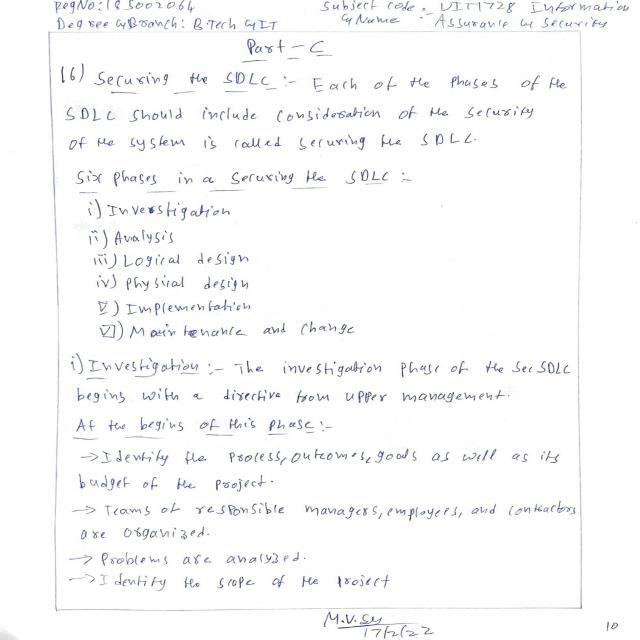 RegNo: 185002064
Subject code :- UIT1728 Information
Degree & Branch: B.Tech & IT
& Name Assurance & Security
Part - C
16) Securing the SDLC :- Each of the Phases of the
SDLC should include consideration of the security
of the system is called securing the SDLC.
Six phases in a securing the SDLC :-
i) Inverstigation
ii) Analysis
iii) Logical design
iv) Physical design
V) Implementation
VI) Maintenance and change
i) Investigation :- The investigation phase of the SecSDLC
begins with a directive from upper management.
At the begins of this phase :-
→ Identify the process, outcomes, goods as well as its
budget of the project.
→ Teams of responsible managers, employees, and contractors
are organized.
→ Problems are analyzed.
→ Identify the scope of the project
17/2/22
10